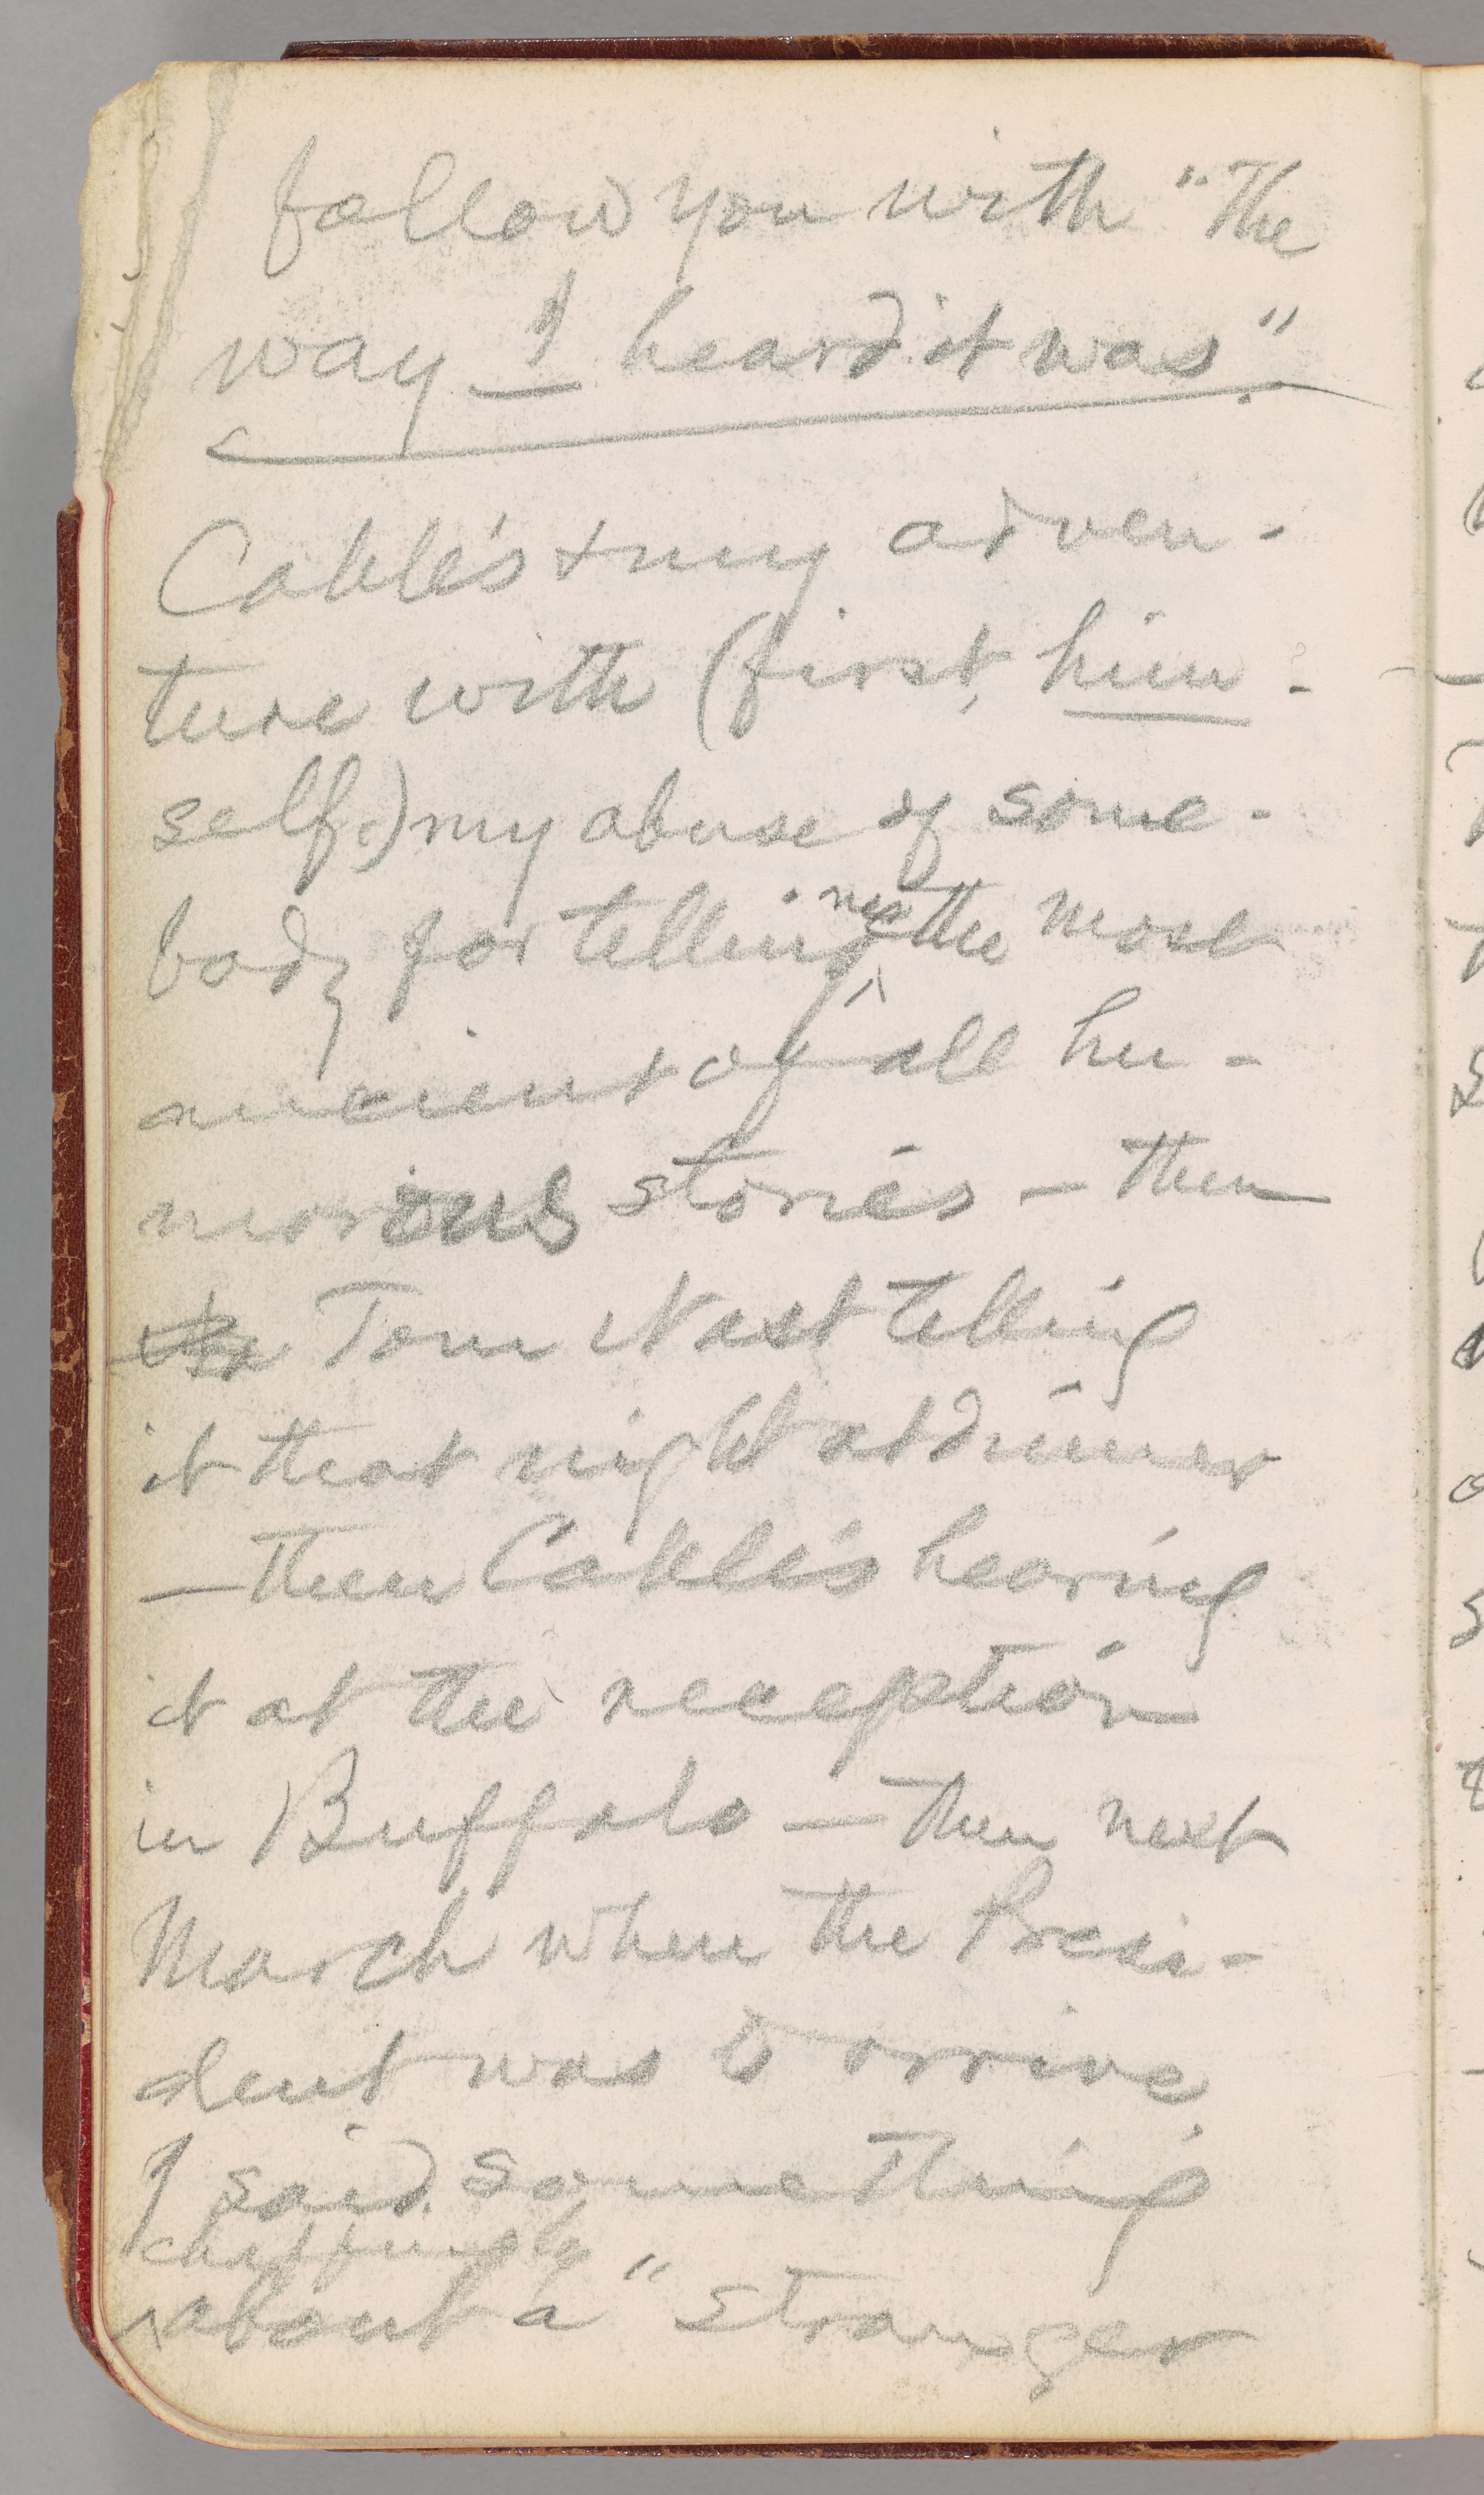 follow you with "The
way I heard it was."
Cable's & my adven-
ture with (first, him-
self.) my abuse of some-
body for telling me the most
ancient of all hu-
morous stories — then
Tom Nast telling
it that night at dinner
— then Cable's hearing
it at the reception
in Buffalo — then next
March when the Presi-
dent was to arrive
I said something
chaffingly
about a "stranger